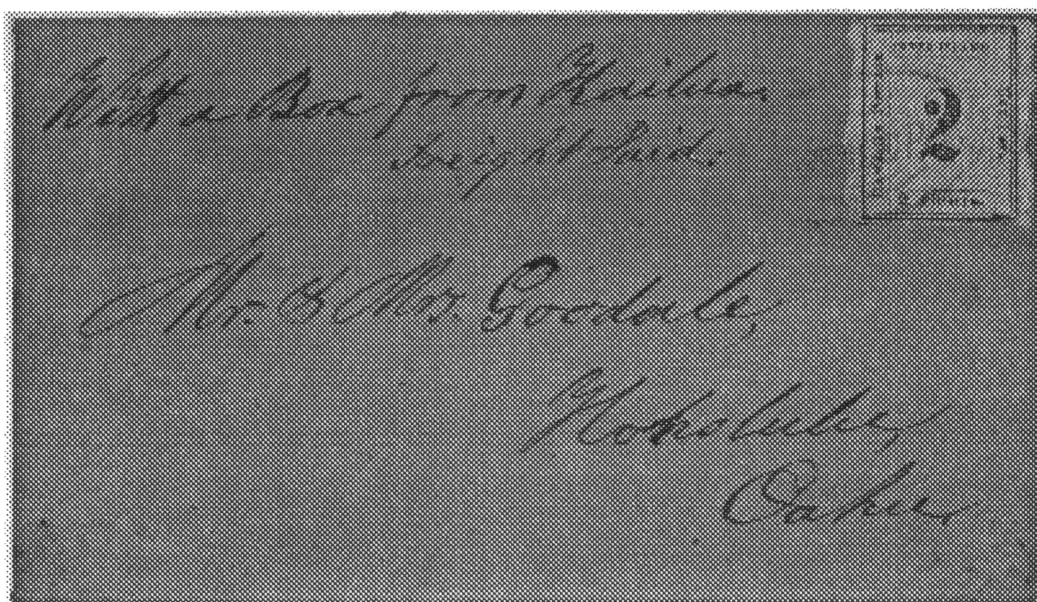 With a Box from Kailua.
Freight Paid.
2
Mr. & Mrs. Goodale,
Honolulu,
Oahu.